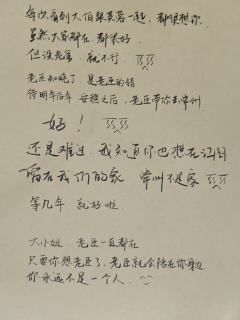 每次看到大伯跟英蓉一起，都很想你.
虽然大家都在 都很好.
但没老臣，就不行.
老臣知晓了，是老臣的错
待明年后年 安稳之后，老臣带你去常州.
好！
还是难过. 我知道你也想在江阴
留在我们的家 常州不是家
等几年 就好啦.
大小姐 老臣一直都在
只要你想老臣了，老臣就会陪在你身边
你永远不是一个人.